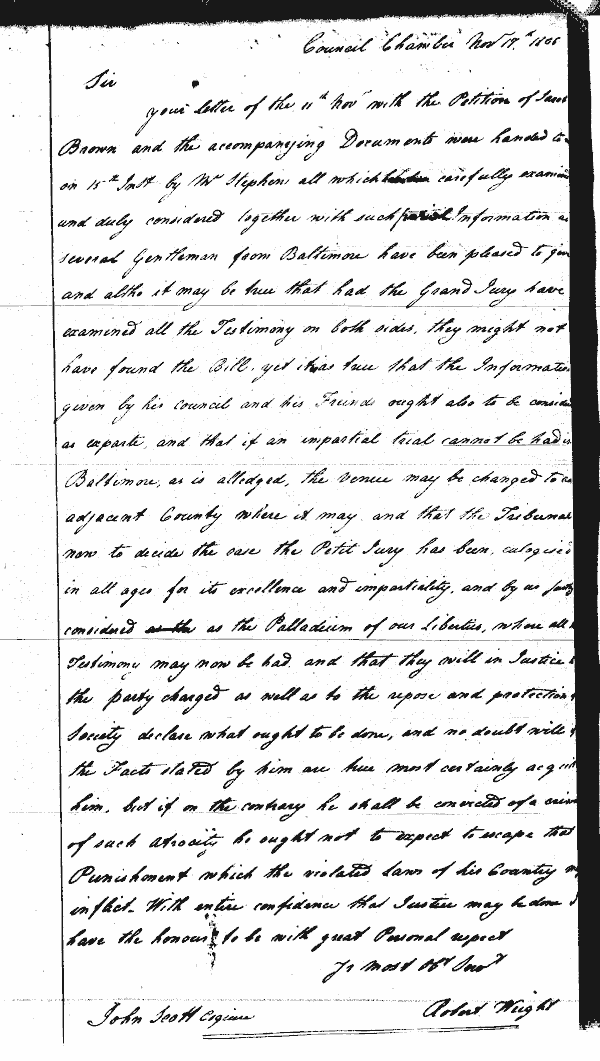 Council Chamber Novr 17th 1806
Sir
your Letter of the 11th Novr with the Petition of
Brown and the accompanying Documents were handed to
on 15th Inst by Mr Stephens all which carefully examin
and duly considered together with such Information as
several Gentleman from Baltimore have been pleased to give
and altho it may be true that had the Grand Jury have
examined all the Testimony on both sides, they might not
have found the Bill, yet it as true that the Information
given by his council and his Friends ought also to be conside
as exparte, and that if an impartial trial cannot be had in
Baltimore, as is alledged, the venue may be changed to an
adjacent County where it may and that the Tribunal
now to decide the case the Petit Jury has been eulogised
in all ages for its excellence and impartiality, and by us
considered as the as the Palladium of our Liberties, where all
Testimony may now be had and that they will in Justice
the party charged as well as to the repose and protection
Society declare what ought to be done, and no doubt will
the Facts stated by him are true most certainly acquit
him, but if on the contrary he shall be convicted of a crime
of such atrocity he ought not to expect to escape that
Punishment which the violated Laws of his Country
inflict. With entire confidence that Justice may be done I
have the honour to be with great Personal respect
Yr most Obt Servt
John Scott Esquire Robert Wright